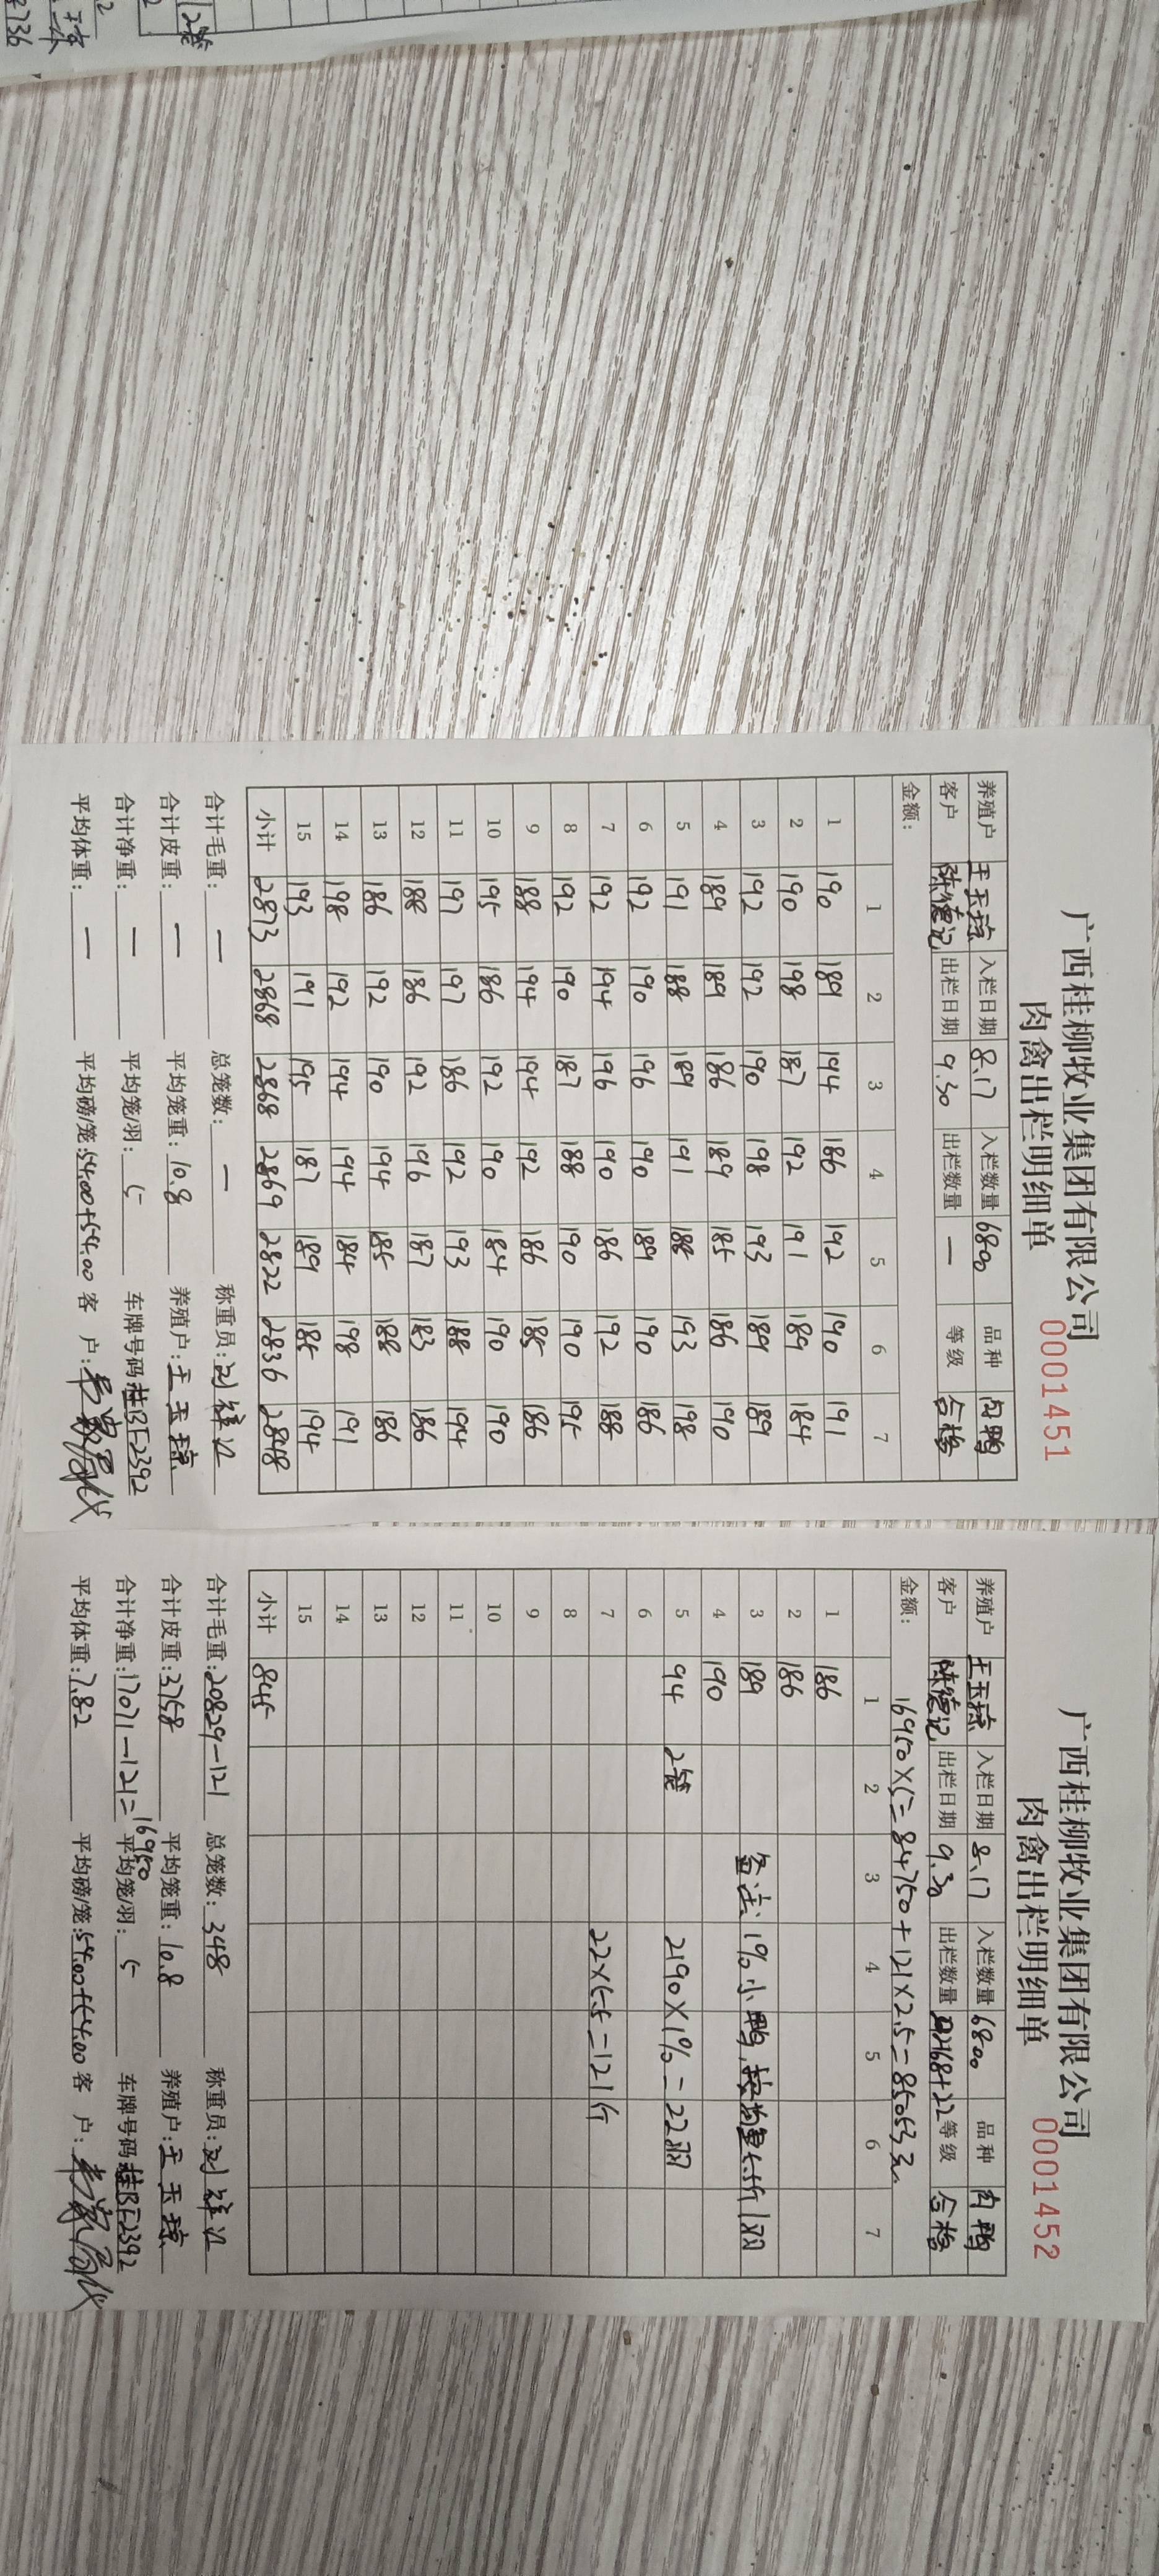 广西桂柳牧业集团有限公司
肉禽出栏明细单 0001451
养殖户 王玉琼 入栏日期 8.17 入栏数量 6800 品种 肉鸭
客户 陈德记 出栏日期 9.30 出栏数量 — 等级 合格
金额:
1 2 3 4 5 6 7
1 190 189 194 186 192 190 191
2 190 198 187 192 191 189 184
3 192 192 190 198 193 189 189
4 189 189 186 189 185 186 190
5 191 188 189 191 188 193 198
6 192 190 196 190 189 190 186
7 192 194 196 190 186 192 188
8 192 190 187 188 190 190 195
9 188 194 194 192 186 185 186
10 195 186 192 190 184 190 190
11 197 197 186 192 193 188 194
12 188 186 192 196 187 183 186
13 186 192 190 194 185 188 186
14 198 192 194 194 184 198 191
15 193 191 195 187 189 185 194
小计 2873 2868 2868 2869 2822 2836 2848
合计毛重: — 总笼数: — 称重员:刘祥江
合计皮重: — 平均笼重:10.8 养殖户:王玉琼
合计净重: — 平均笼/羽: 5 车牌号码:桂BF2392
平均体重: — 平均磅/笼:54.00+54.00 客 户:
广西桂柳牧业集团有限公司
肉禽出栏明细单 0001452
养殖户 王玉琼 入栏日期 8.17 入栏数量 6800 品种 肉鸭
客户 陈德记 出栏日期 9.30 出栏数量 2168+22 等级 合格
金额: 16950×5=84750+121×2.5=85053元
1 2 3 4 5 6 7
1 186
2 186
3 189 备注:1%小鸭,按均重5.5斤/羽
4 190
5 94 2笼 2190×1%=22羽
6
7 22×5.5=121斤
8
9
10
11
12
13
14
15
小计 845
合计毛重:20829-121 总笼数: 348 称重员:刘祥江
合计皮重:3758 平均笼重:10.8 养殖户:王玉琼
合计净重:17071-121=16950 平均笼/羽: 5 车牌号码:桂BF2392
平均体重:7.82 平均磅/笼:54.00+54.00 客 户:
12笼